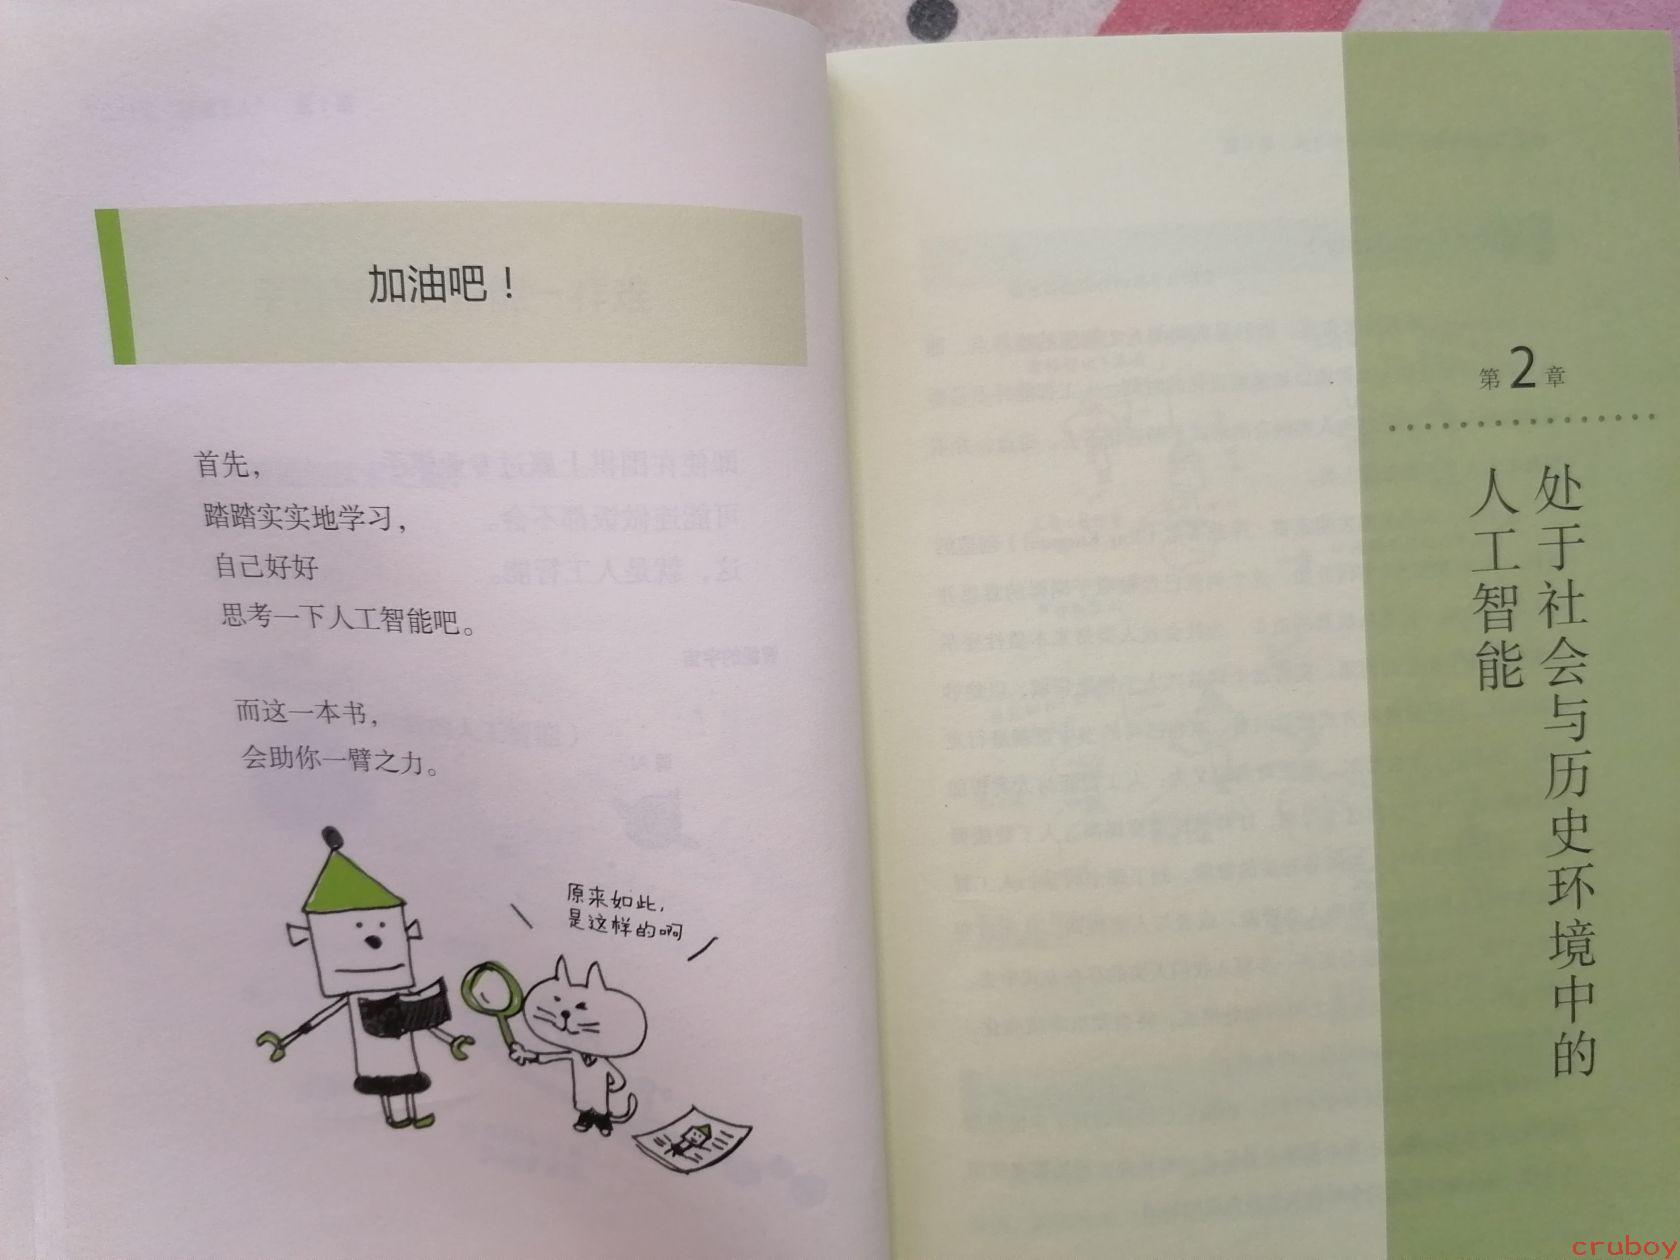 加油吧！
首先，
踏踏实实地学习，
自己好好
思考一下人工智能吧。
而这一本书，
会助你一臂之力。
原来如此，
是这样的啊
第2章
处于社会与历史环境中的
人工智能
cruboy